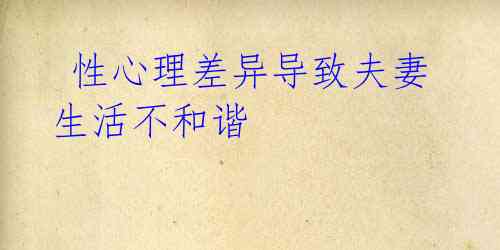 性心理差异导致夫妻
生活不和谐